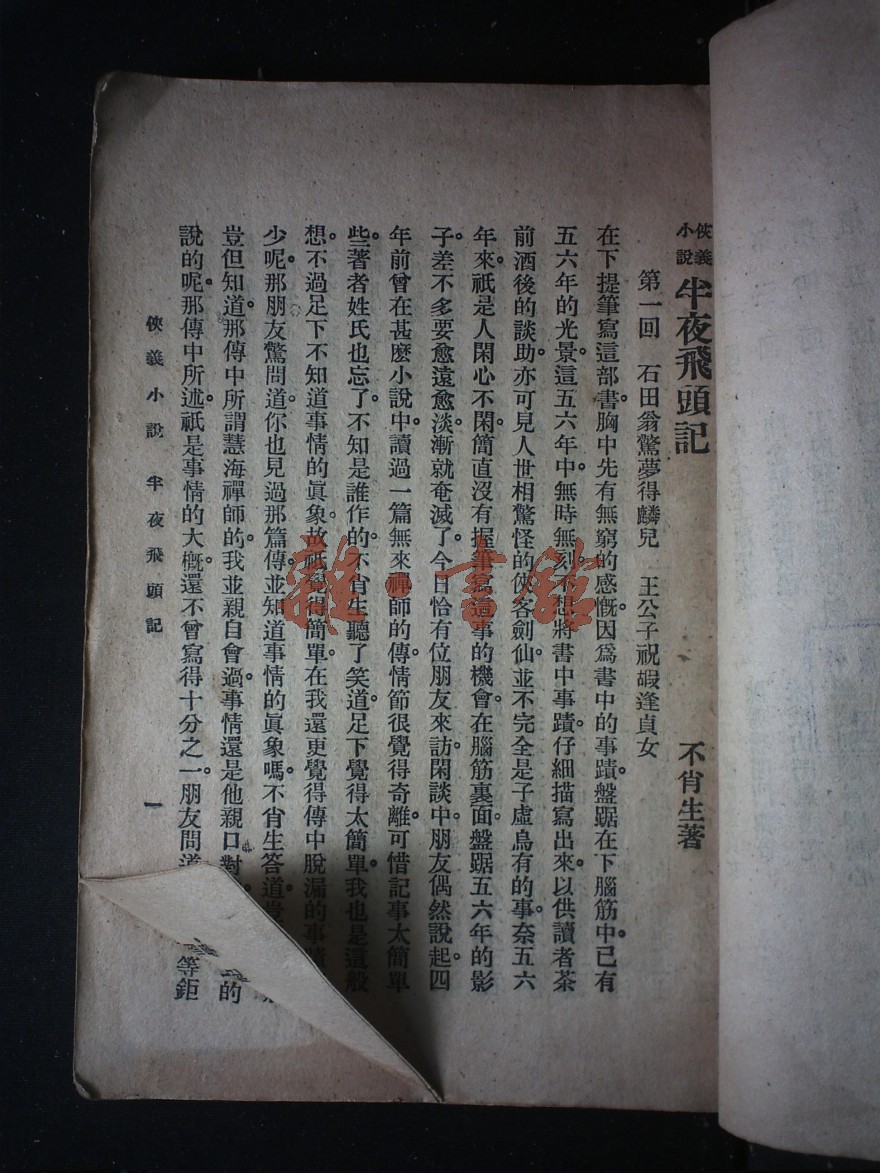 俠義小說 半夜飛頭記 不肖生著
第一回 石田翁驚夢得麟兒 王公子祝嘏逢貞女
在下提筆寫這部書。胸中先有無窮的感慨。因爲書中的事蹟。盤踞在下腦筋中。已有
五六年的光景。這五六年中。無時無刻。不想將書中事蹟。仔細描寫出來。以供讀者茶
前酒後的談助。亦可見人世相驚怪的俠客劍仙。並不完全是子虛烏有的事。奈五六
年來。祇是人閑心不閑。簡直沒有握筆寫這事的機會。在腦筋裏面。盤踞五六年的影
子。差不多要愈遠愈淡。漸就奄滅了。今日恰有位朋友來訪。閑談中。朋友偶然說起。四
年前曾在甚麽小說中。讀過一篇無來禪師的傳。情節很覺得奇離。可惜記事太簡單
些。著者姓氏也忘了。不知是誰作的。不肖生聽了笑道。足下覺得太簡單。我也是這般
想。不過足下不知道事情的眞象。故祇覺得簡單。在我還更覺得傳中脫漏的事蹟
少呢。那朋友驚問道。你也見過那篇傳。並知道事情的眞象嗎。不肖生答道。豈
豈但知道。那傳中所謂慧海禪師的。我並親自會過。事情還是他親口對 的
說的呢。那傳中所述。祇是事情的大概。還不曾寫得十分之一。朋友問道 等鉅
俠義小說 半夜飛頭記 一
雜·書館